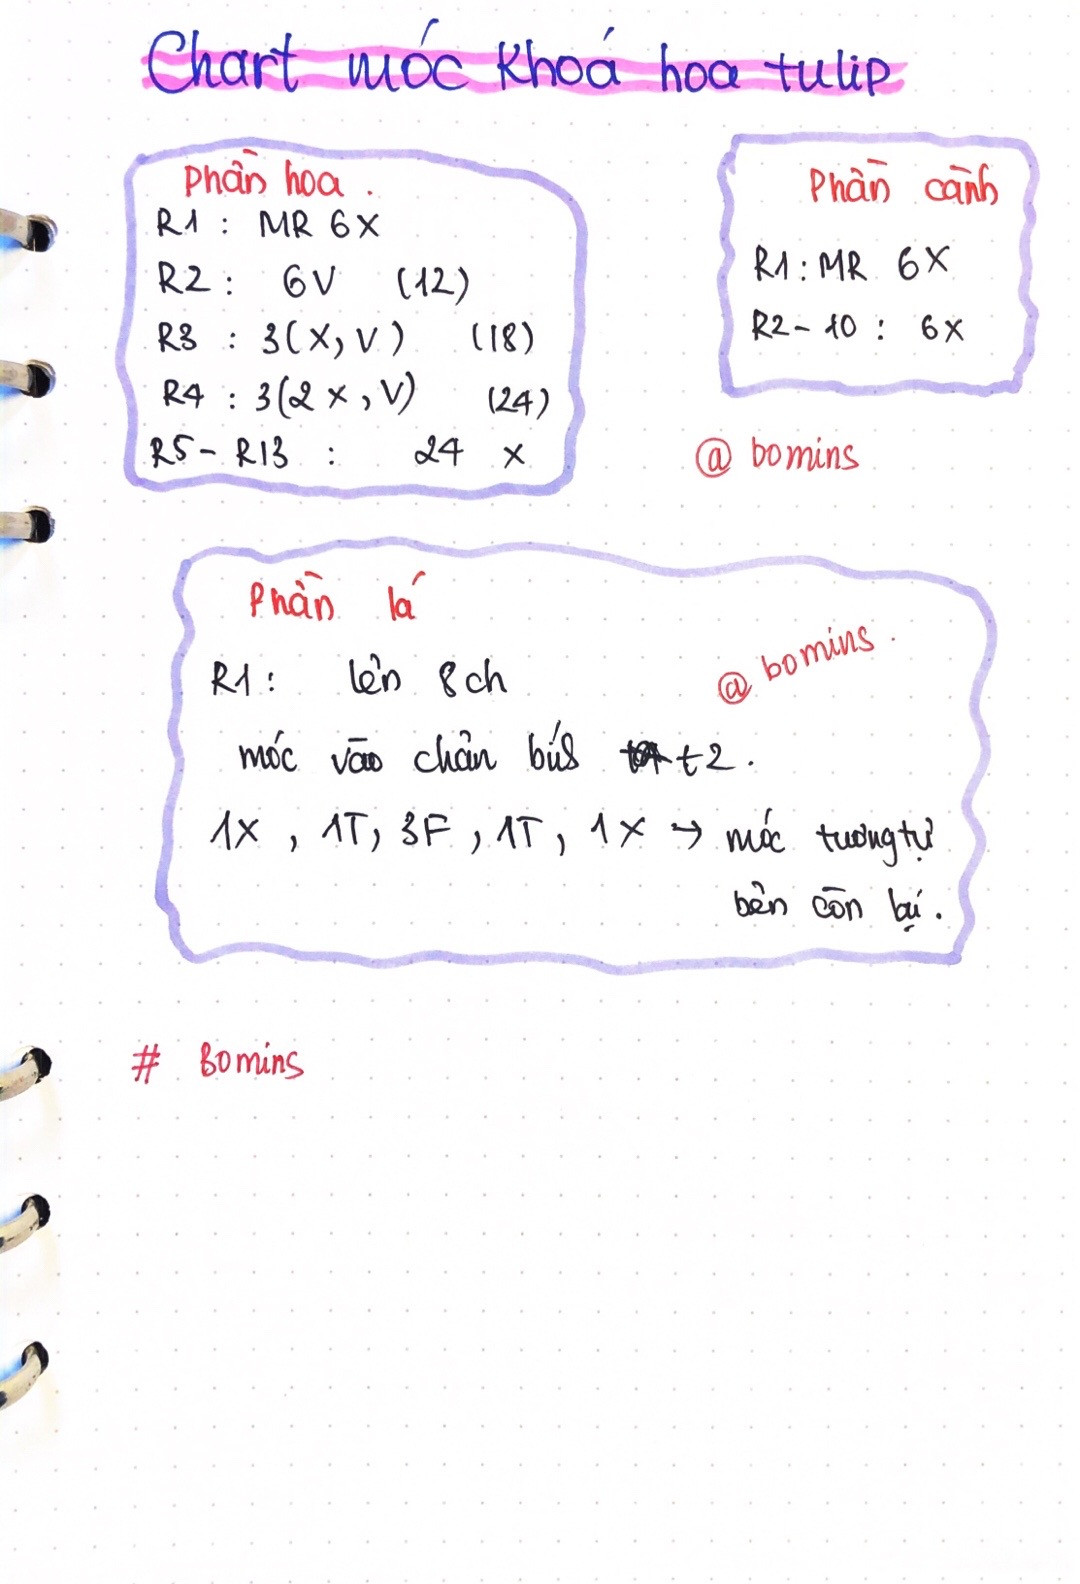 Chart móc Khoá hoa tulip
Phần hoa.
R1 : MR 6X
R2 : 6V (12)
R3 : 3(X, V) (18)
R4 : 3(2X, V) (24)
R5 - R13 : 24 X
Phần cành
R1 : MR 6X
R2 - 10 : 6X
@ bomins
Phần lá
R1 : lên 8ch
@ bomins.
móc vào chân bụi t2.
1X, 1T, 3F, 1T, 1X → móc tương tự
bên còn lại.
# Bomins